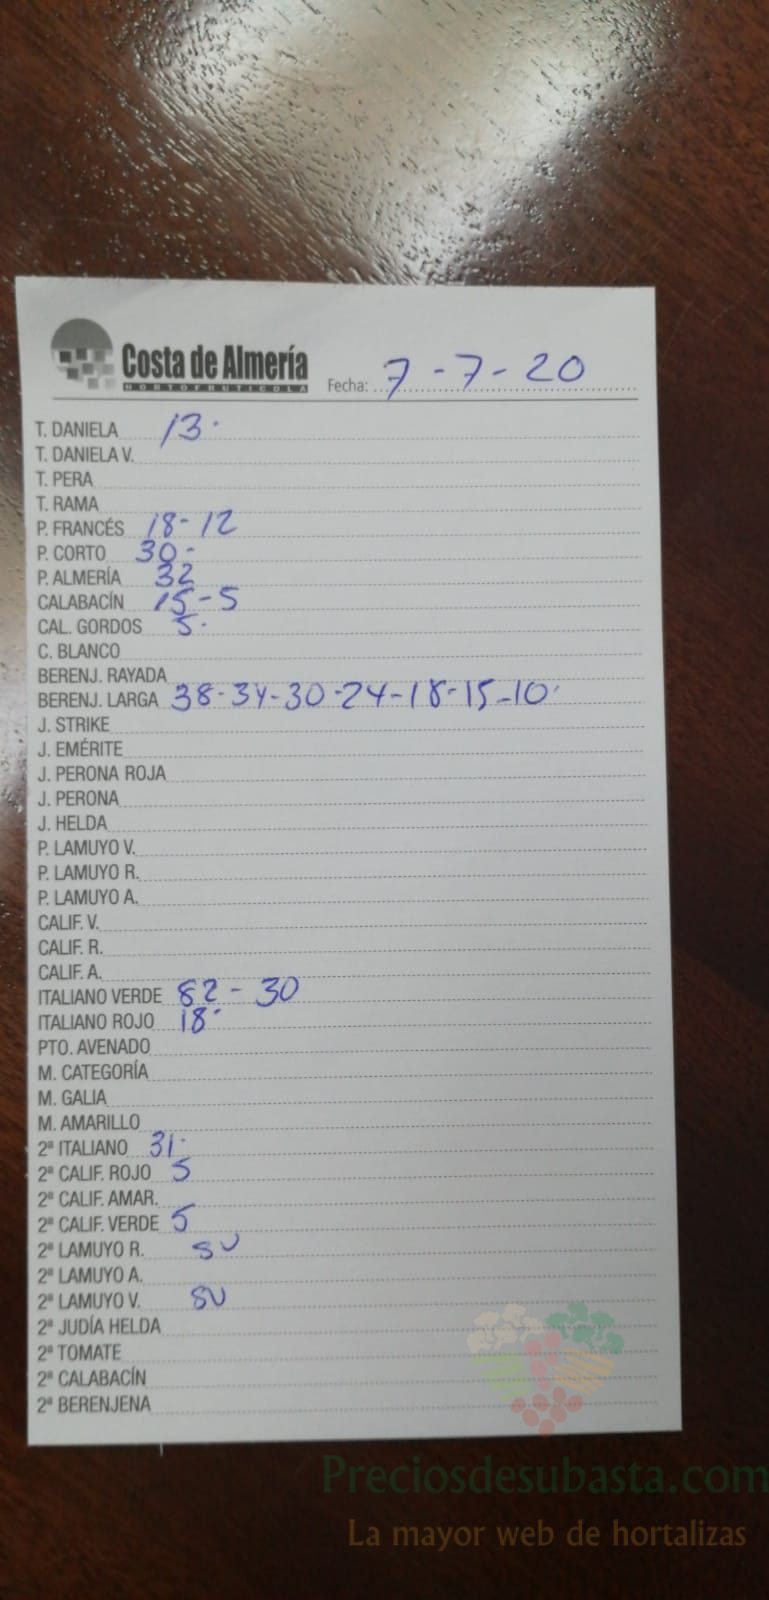 Costa de Almería
HORTOFRUTICOLA
Fecha: 7-7-20
T. DANIELA 13.
T. DANIELA V.
T. PERA
T. RAMA
P. FRANCÉS 18-12
P. CORTO 30-
P. ALMERÍA 32
CALABACÍN 15-5
CAL. GORDOS 5.
C. BLANCO
BERENJ. RAYADA
BERENJ. LARGA 38-34-30-24-18-15-10
J. STRIKE
J. EMÉRITE
J. PERONA ROJA
J. PERONA
J. HELDA
P. LAMUYO V.
P. LAMUYO R.
P. LAMUYO A.
CALIF. V.
CALIF. R.
CALIF. A.
ITALIANO VERDE 82-30
ITALIANO ROJO 18-
PTO. AVENADO
M. CATEGORÍA
M. GALIA
M. AMARILLO
2ª ITALIANO 31.
2ª CALIF. ROJO 5
2ª CALIF. AMAR.
2ª CALIF. VERDE 5
2ª LAMUYO R. SU
2ª LAMUYO A.
2ª LAMUYO V. SU
2ª JUDÍA HELDA
2ª TOMATE
2ª CALABACÍN
2ª BERENJENA
Preciosdesubasta.com
La mayor web de hortalizas